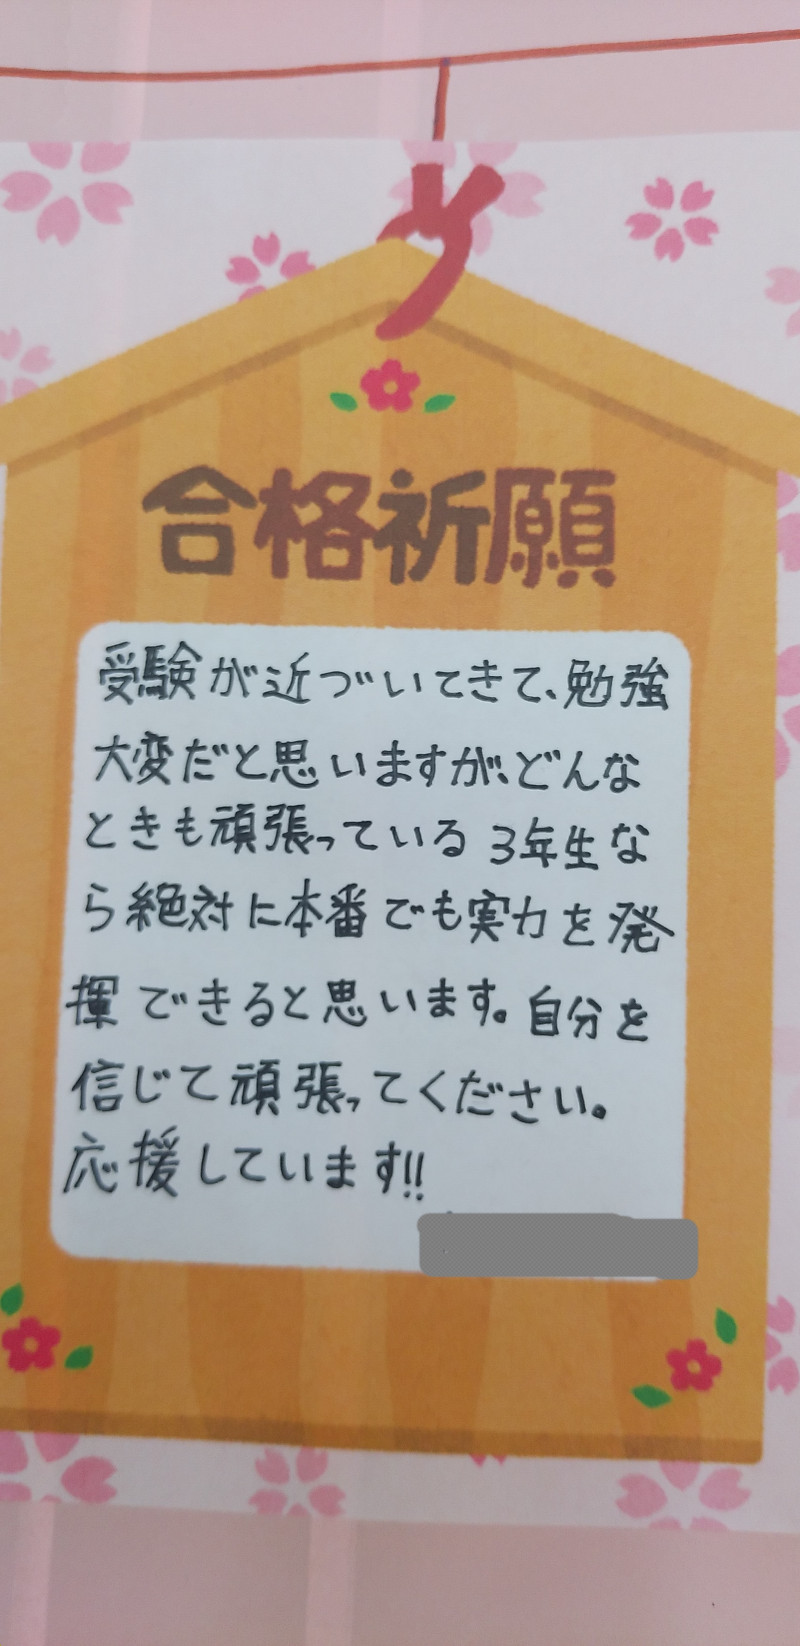 合格祈願
受験が近づいてきて、勉強
大変だと思いますが、どんな
ときも頑張っている3年生な
ら絶対に本番でも実力を発
揮できると思います。自分を
信じて頑張ってください。
応援しています!!